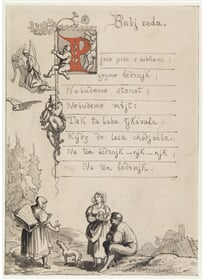 Babj rada.
Pjme pivo s bobkem,
gezme bedrnjk,
Nebudeme stonat,
Nebudeme mřjt:
Tak ta baba řjkávala
Když do lesa chodjvala
Na ten bedrnjk _njk _njk
Na ten bedrnjk.